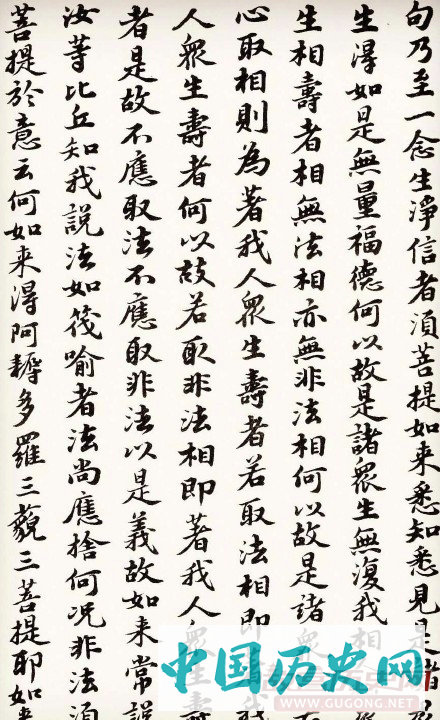 句乃至一念生淨信者須菩提如来悉知悉見是
生淂如是無量福德何以故是諸衆生無復我相
生相壽者相無法相亦無非法相何以故是諸衆
心取相則為著我人衆生壽者若取法相即
人衆生壽者何以故若取非法相即著我人衆生壽
者是故不應取法不應取非法以是義故如来常説
汝等比丘知我說法如筏喻者法尚應捨何况非法須
菩提於意云何如来淂阿耨多羅三藐三菩提耶如来
中国历史网
WWW.GUGONG.NET